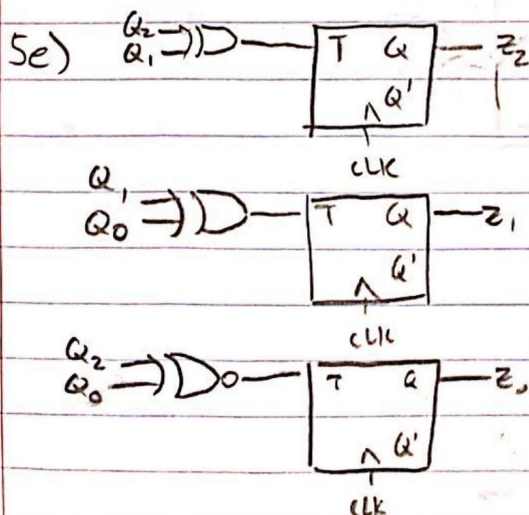 5e)
Q2
Q1
T Q
Z2
Q'
CLK
Q1
Q0
T Q
Z1
Q'
CLK
Q2
Q0
T Q
Z0
Q'
CLK